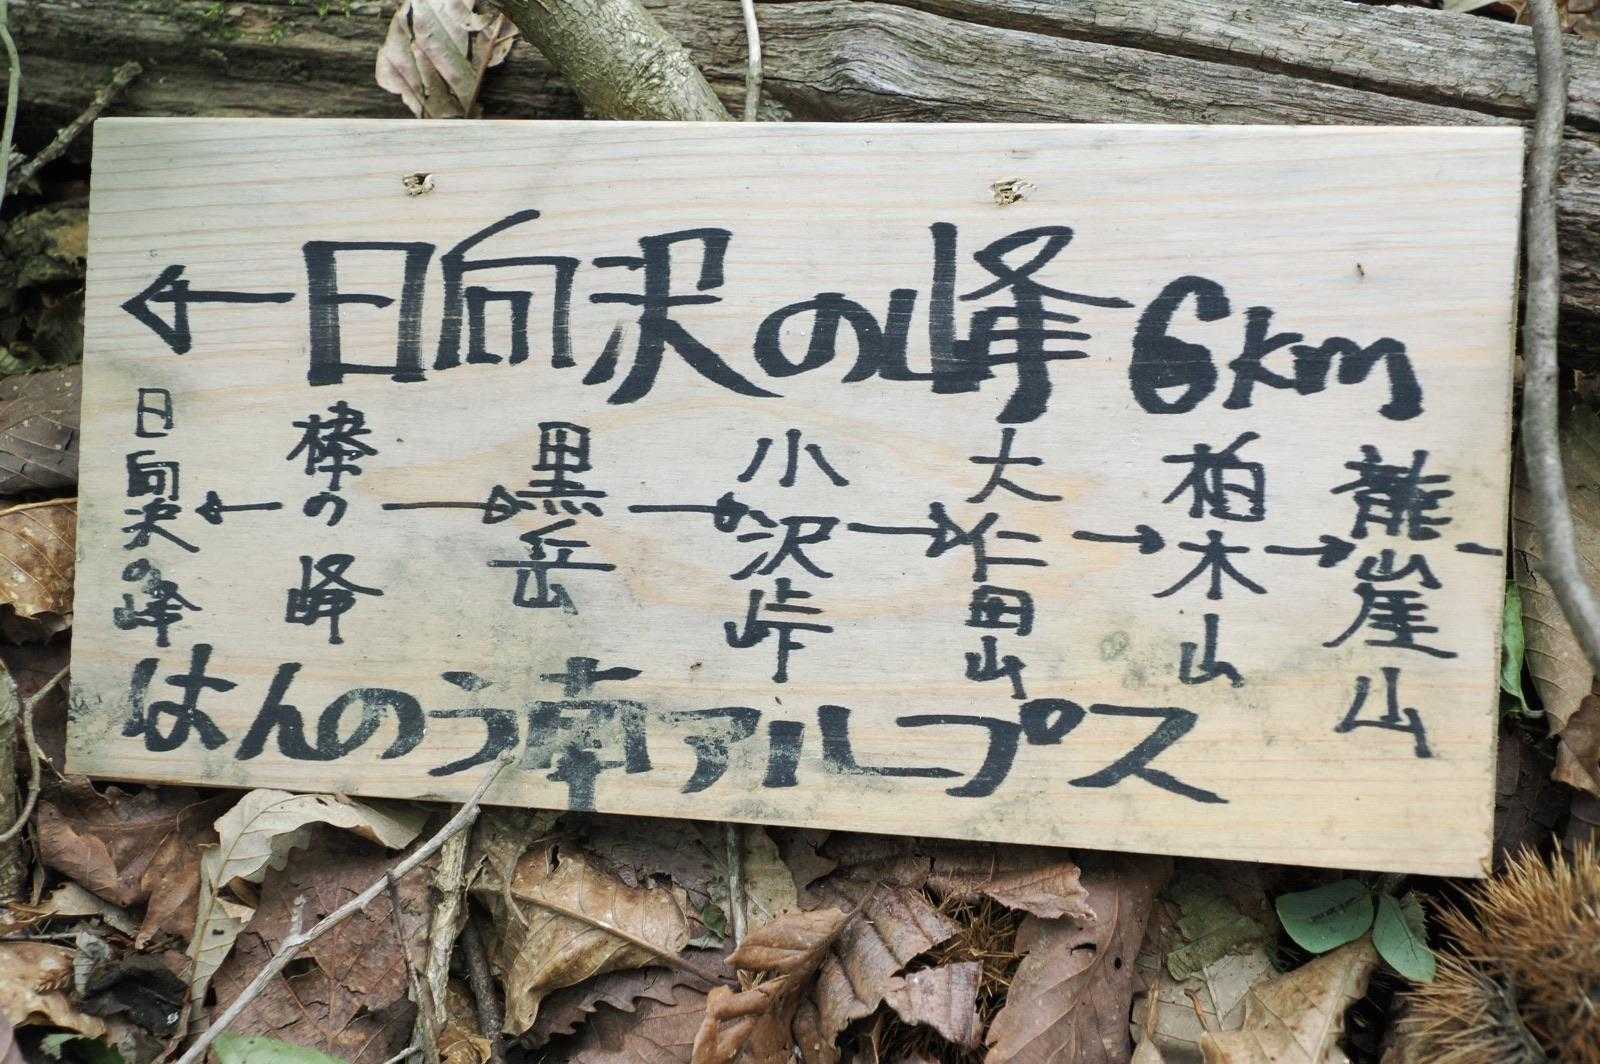 ←日向沢の峰 6km
日向沢の峰←棒の峰→黒岳→小沢峠→大仁田山→柏木山→龍崖山-
はんのう南アルプス